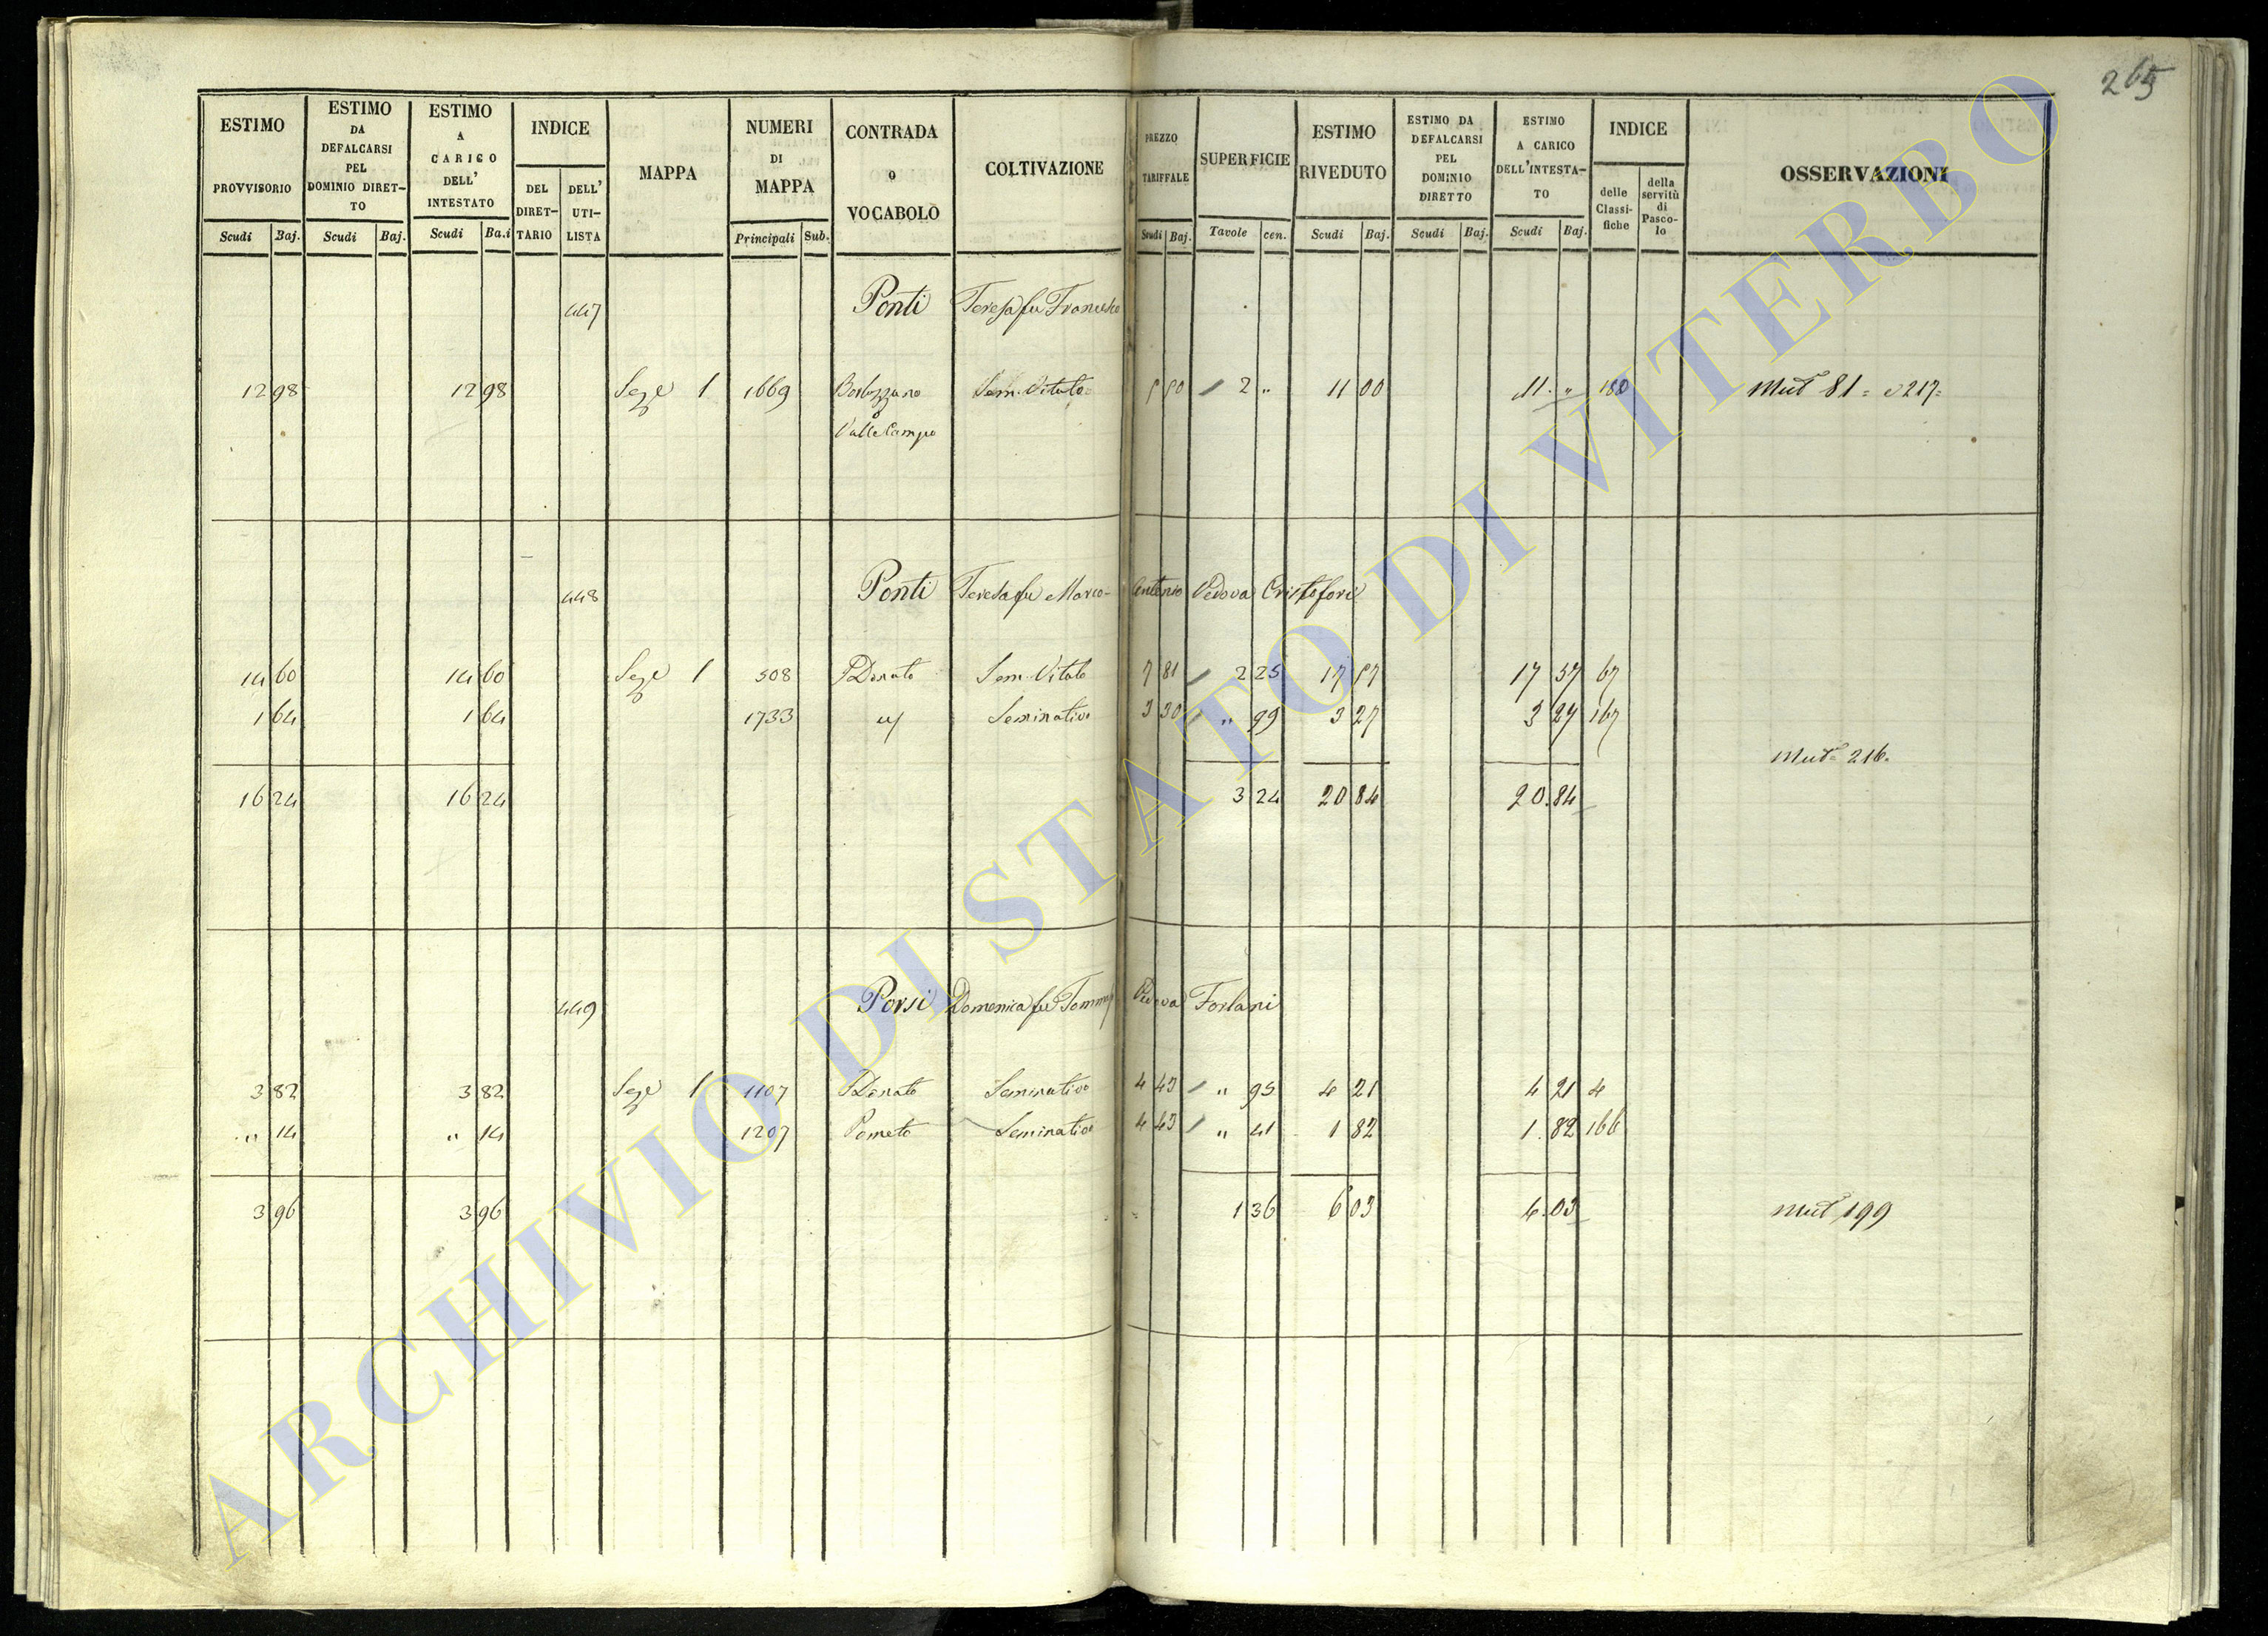 265
ESTIMO PROVVISORIO
Scudi Baj.
ESTIMO DA DEFALCARSI PEL DOMINIO DIRET-TO
Scudi Baj.
ESTIMO A CARICO DELL' INTESTATO
Scudi Ba.i
INDICE
DEL DIRET-TARIO
DELL' UTI-LISTA
MAPPA
NUMERI DI MAPPA
Principali Sub.
CONTRADA O VOCABOLO
COLTIVAZIONE
PREZZO TARIFFALE
Scudi Baj.
SUPERFICIE
Tavole cen.
ESTIMO RIVEDUTO
Scudi Baj.
ESTIMO DA DEFALCARSI PEL DOMINIO DIRETTO
Scudi Baj.
ESTIMO A CARICO DELL'INTESTA-TO
Scudi Baj.
INDICE
delle Classi-fiche
della servitù di Pasco-lo
OSSERVAZIONI
447 Ponti Teresa fu Francesco
12 98 12 98 Seze 1 1669 Sem. Vitato 5 50 2 " 11 00 11 " 180 Mut 81 = 217 =
Valle Campo
448 Ponti Teresa fu Marco- Antonio Vedova Cristofori
14 60 14 60 Seze 1 508 P Donato Sem. Vitato 7 81 2 25 17 57 17 57 67
1 64 1 64 1733 Seminativo 3 30 " 99 3 27 3 27 167
Mut 216.
16 24 16 24 3 24 20 84 20.84
449 Porsi Domenica fu Tommaso Vedova Forlani
3 82 3 82 Seze 1 1107 P Donato Seminativo 4 43 " 95 4 21 4 21 4
" 14 " 14 1207 Pometo Seminativo 4 43 " 41 1 82 1.82 166
3 96 3 96 1 36 6 03 6.03 Mut 199
ARCHIVIO DI STATO DI VITERBO